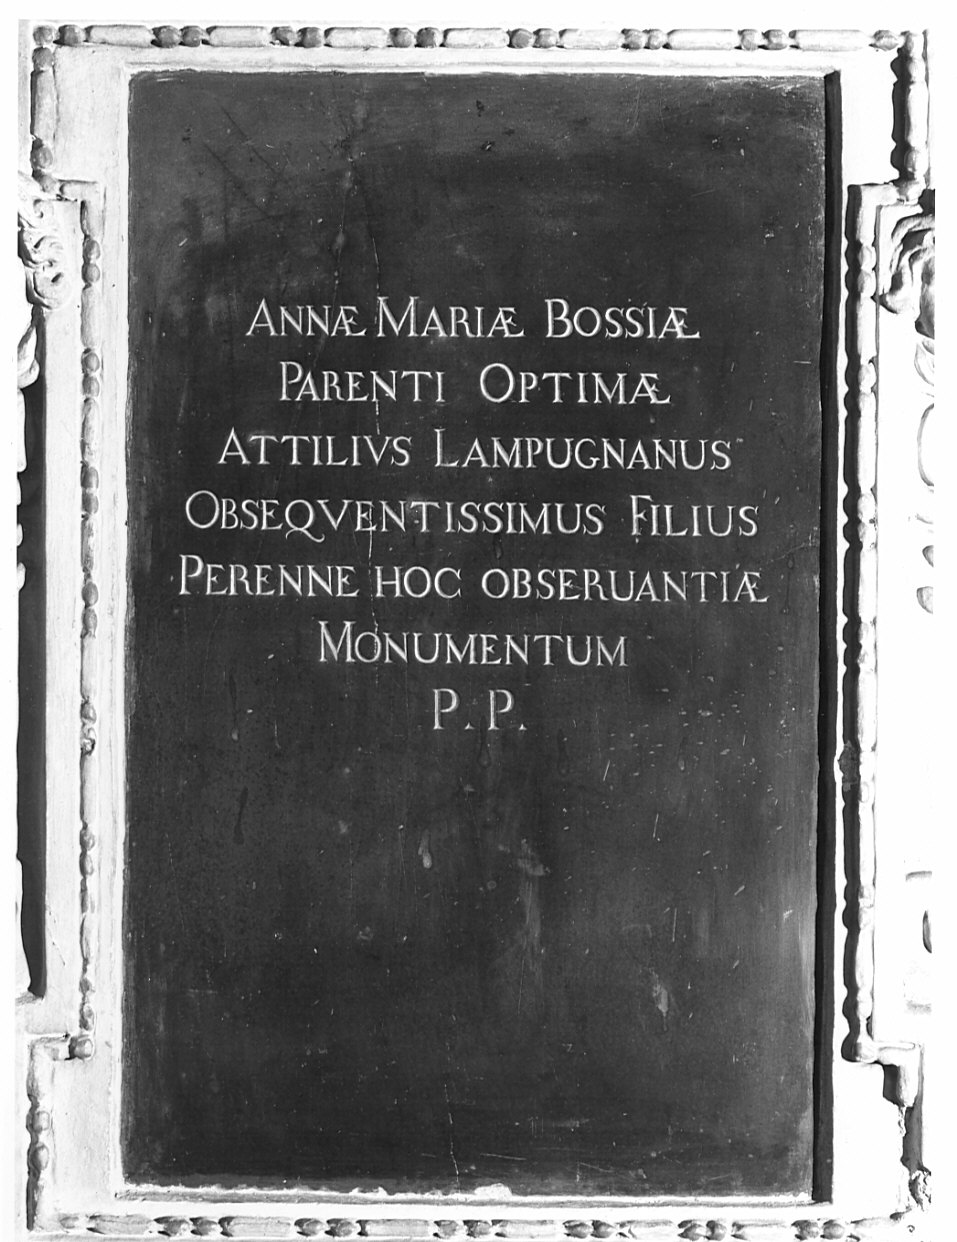 ANNÆ MARIÆ BOSSIÆ
PARENTI OPTIMÆ
ATTILIVS LAMPUGNANUS
OBSEQVENTISSIMUS FILIUS
PERENNE HOC OBSERUANTIÆ
MONUMENTUM
P. P.